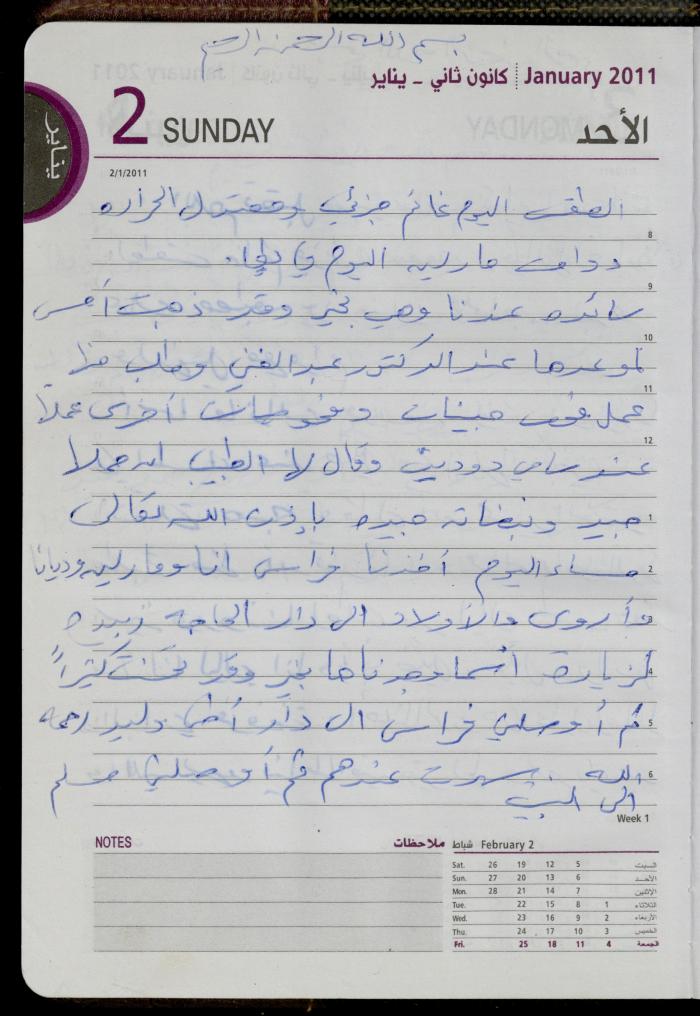 بسم الله الرحمن الرحيم
January 2011 كانون ثاني - يناير
2 SUNDAY الأحد
يناير
2/1/2011
الطقس اليوم غائم جزئي ومعتدل الحرارة
8
دوامت مارلين اليوم في
9
سائده عندنا وهي بخير وقد ذهبت أمس
10
لموعدها عند الدكتور عبد الغني وطلب منها
11
عمل فحص جينات وفحوصات أخرى عملا
12
عند سامي وقال لها الطبيب ان حملها
جيد ونبضاته جيده بإذن الله تعالى
1
مساء اليوم أخذنا فراس انا ومارلين وديانا
2
وأروى والأولاد الى دار الحاجة زبيده
3
لزيارة أسما وجدناها بخير وقد تحسنت كثيراً
4
ثم أوصلني فراس الى دار أخي وليد رحمه
5
الله. سهرت عندهم ثم أوصلني مسلم
6
الى البيت
Week 1
NOTES ملاحظات
February 2 شباط
Sat. 26 19 12 5 السبت
Sun. 27 20 13 6 الأحد
Mon. 28 21 14 7 الاثنين
Tue. 22 15 8 1 الثلاثاء
Wed. 23 16 9 2 الأربعاء
Thu. 24 17 10 3 الخميس
Fri. 25 18 11 4 الجمعة